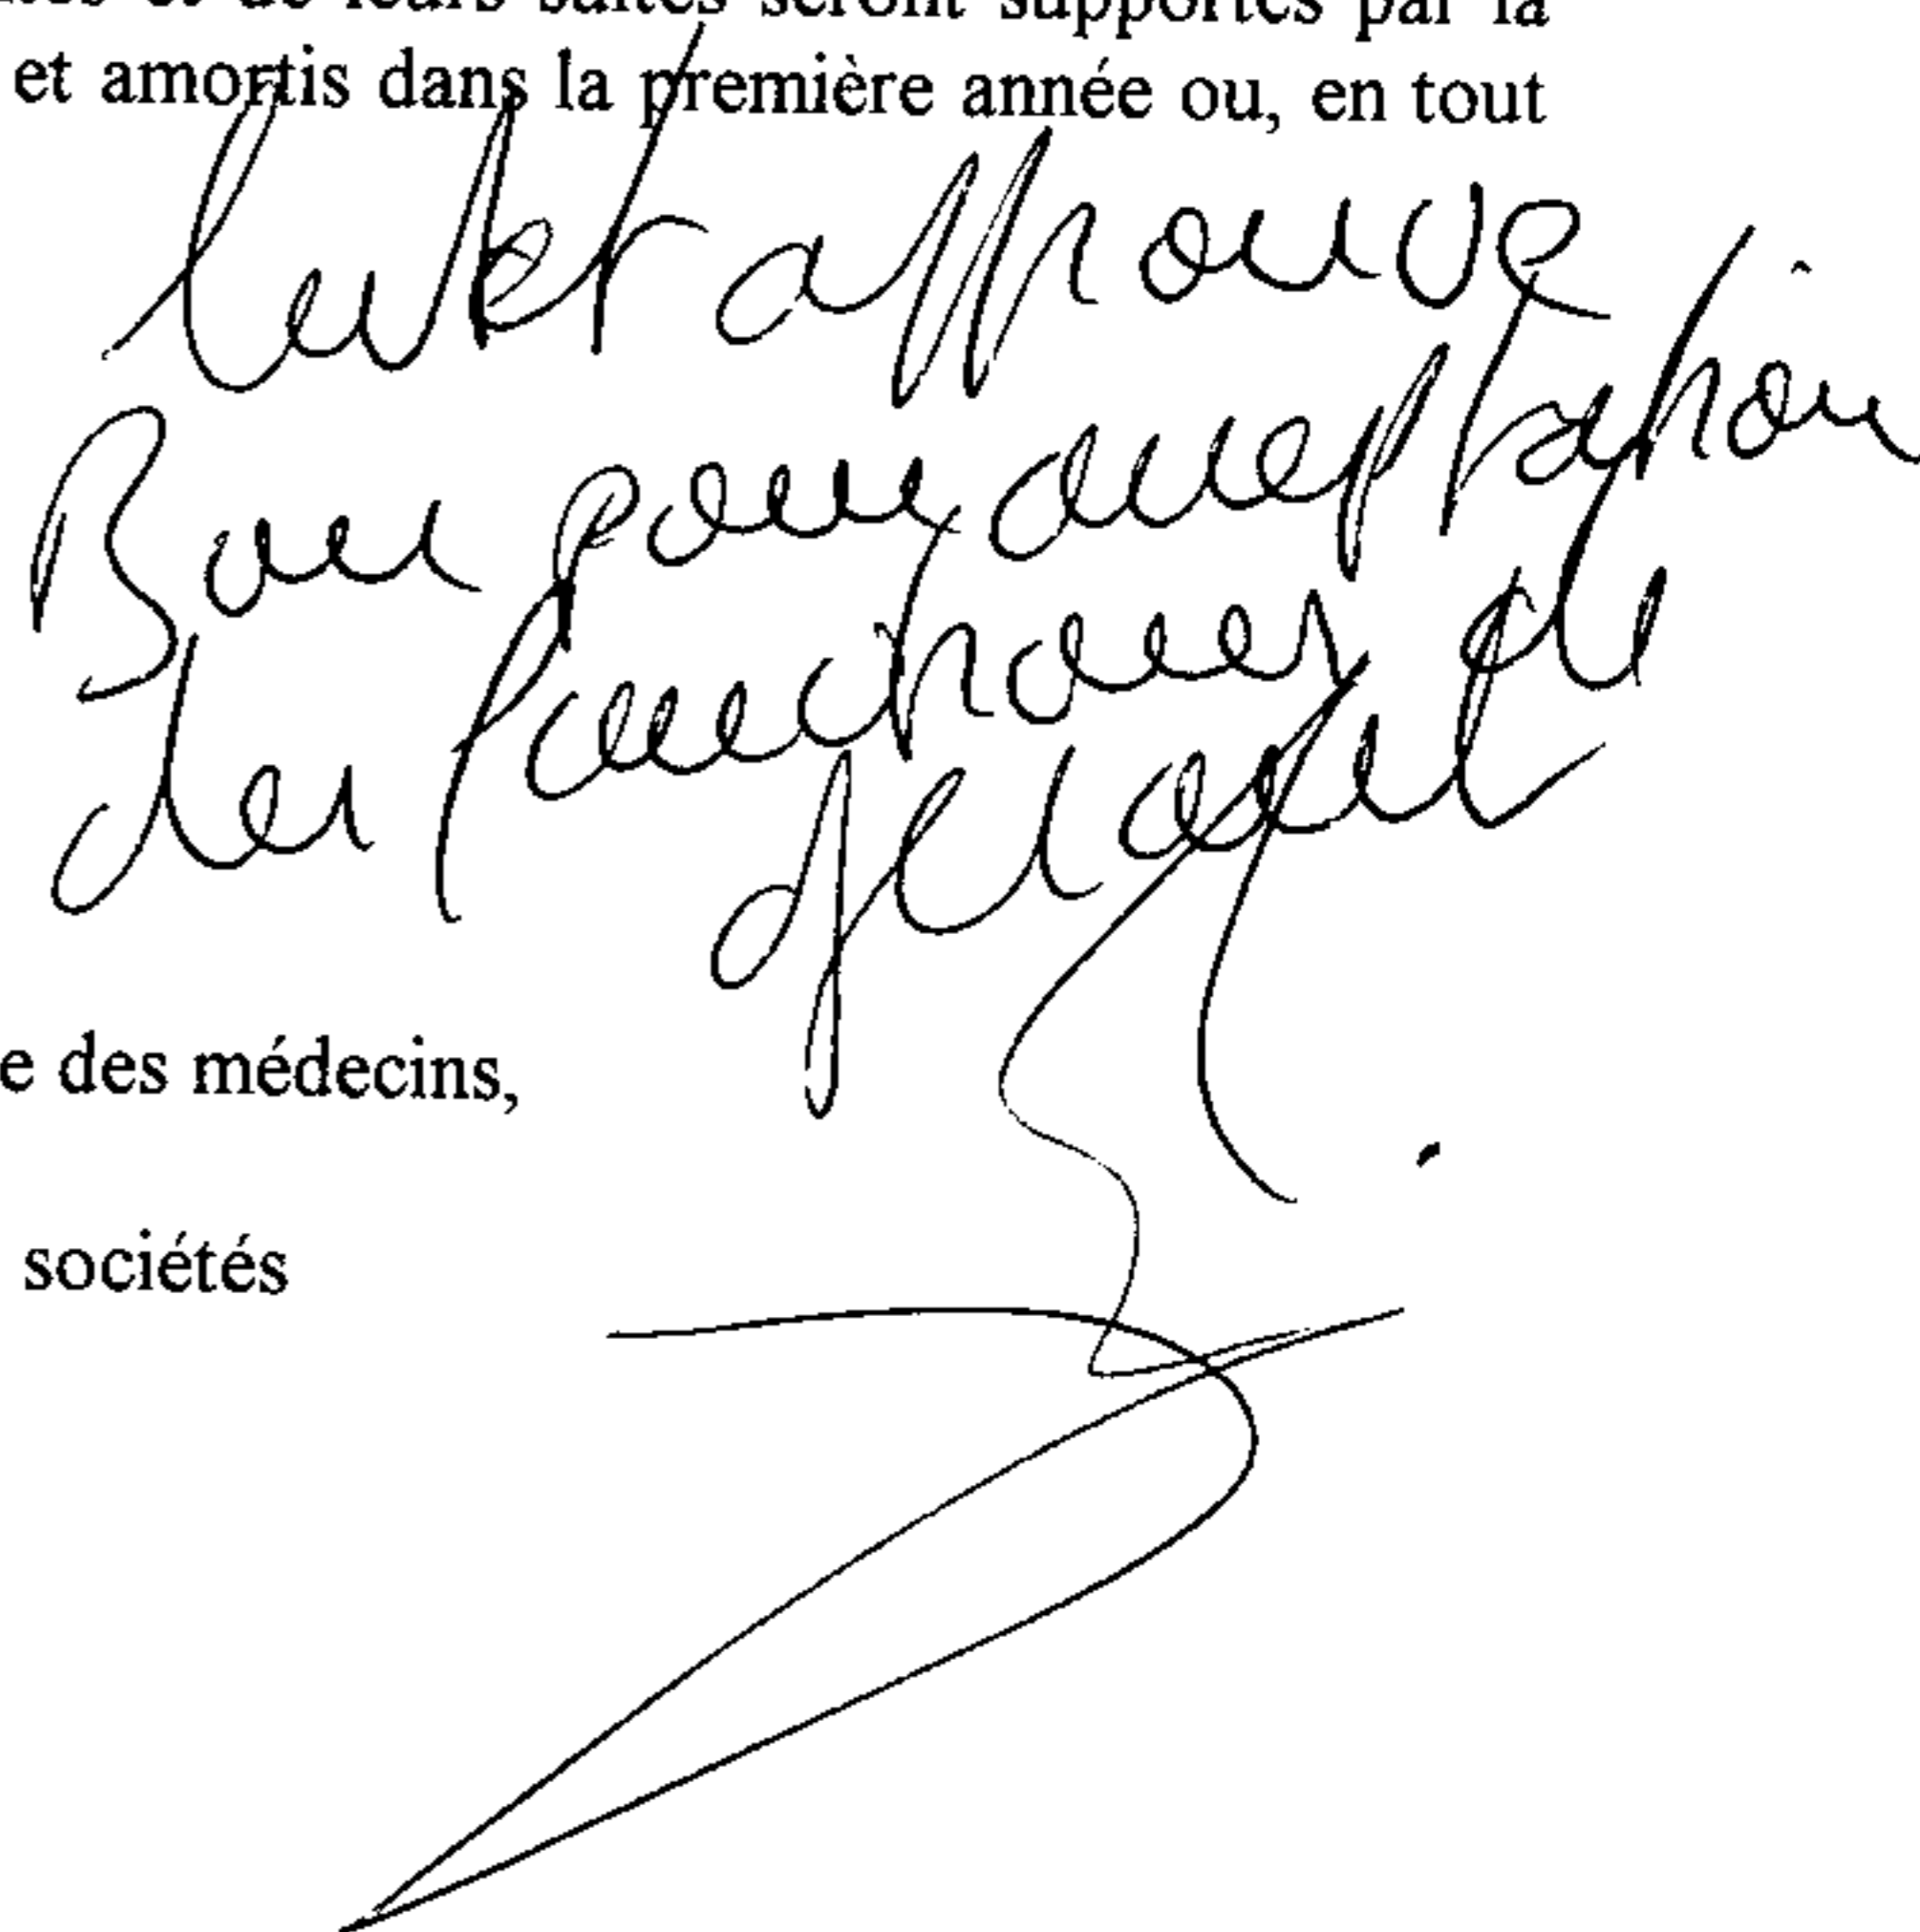 et de leurs suites seront supportés par la
et amortis dans la première année ou, en tout
lu et approuvé
Bon pour acceptation
des fonctions de
gérant
e des médecins,
sociétés